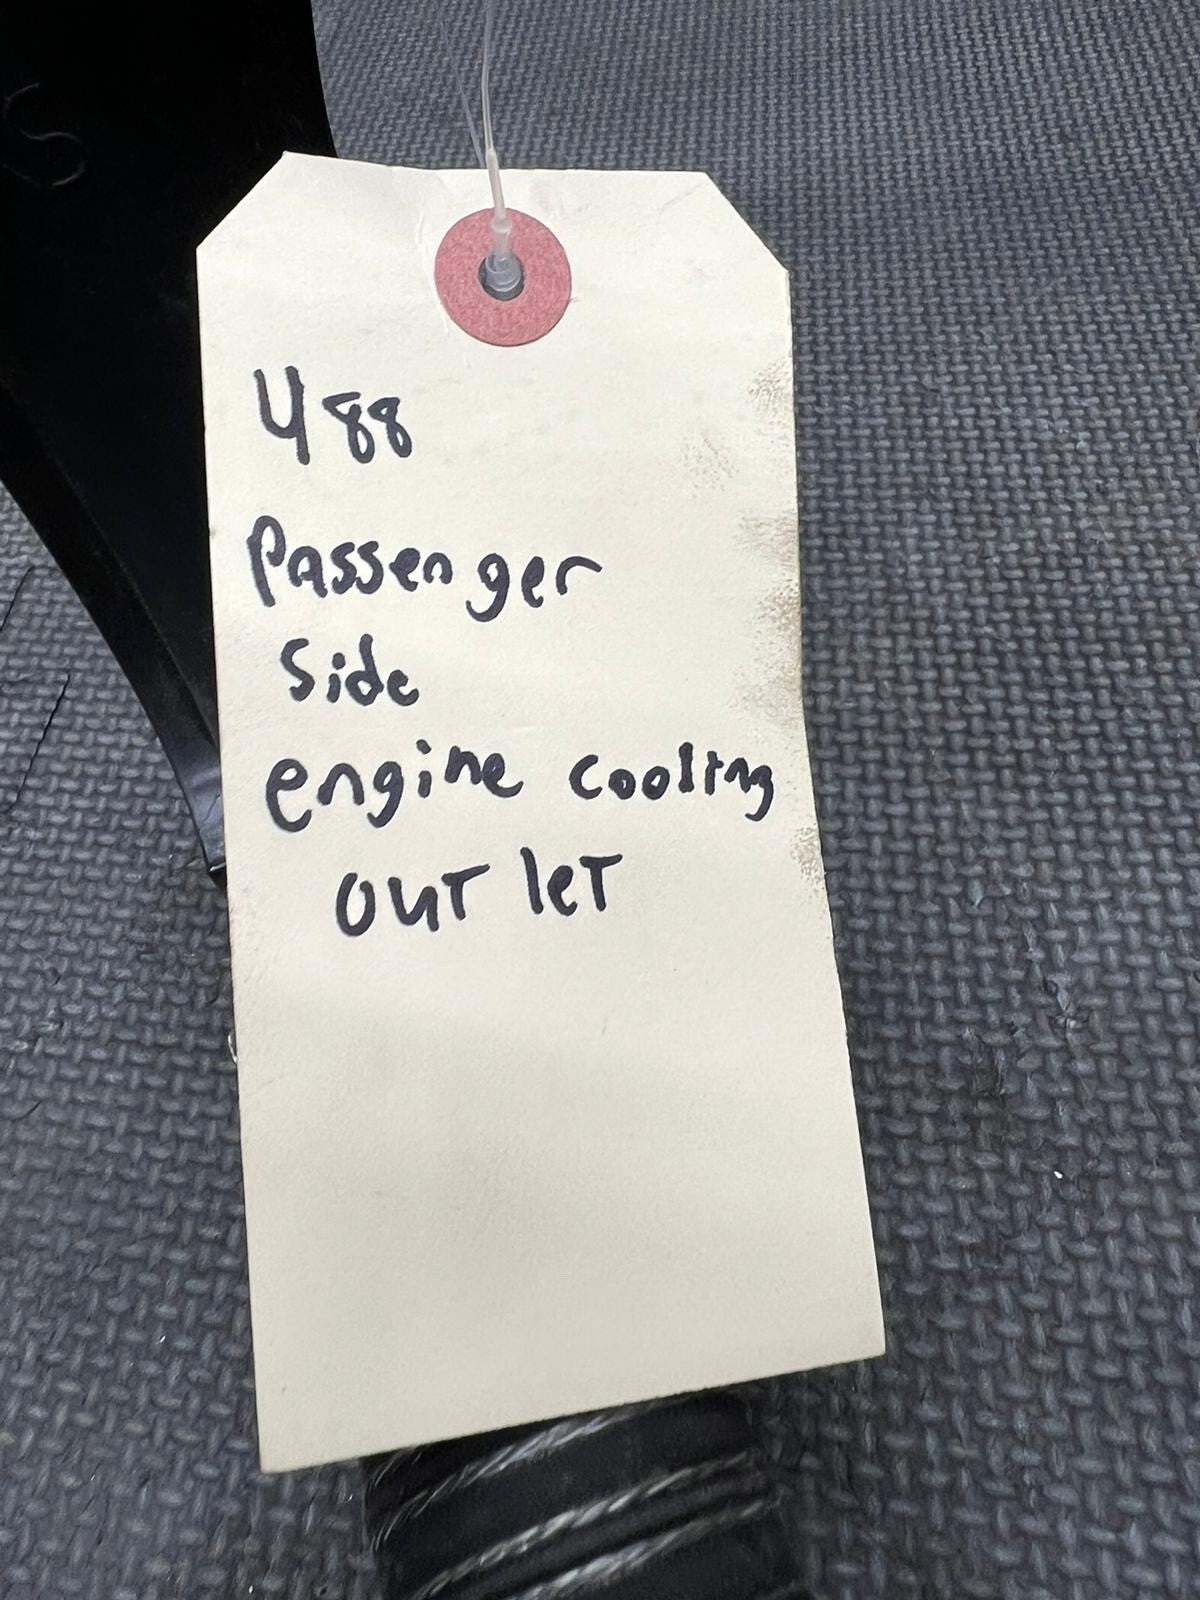 S
488
Passenger
Side
engine cooling
OUT leT